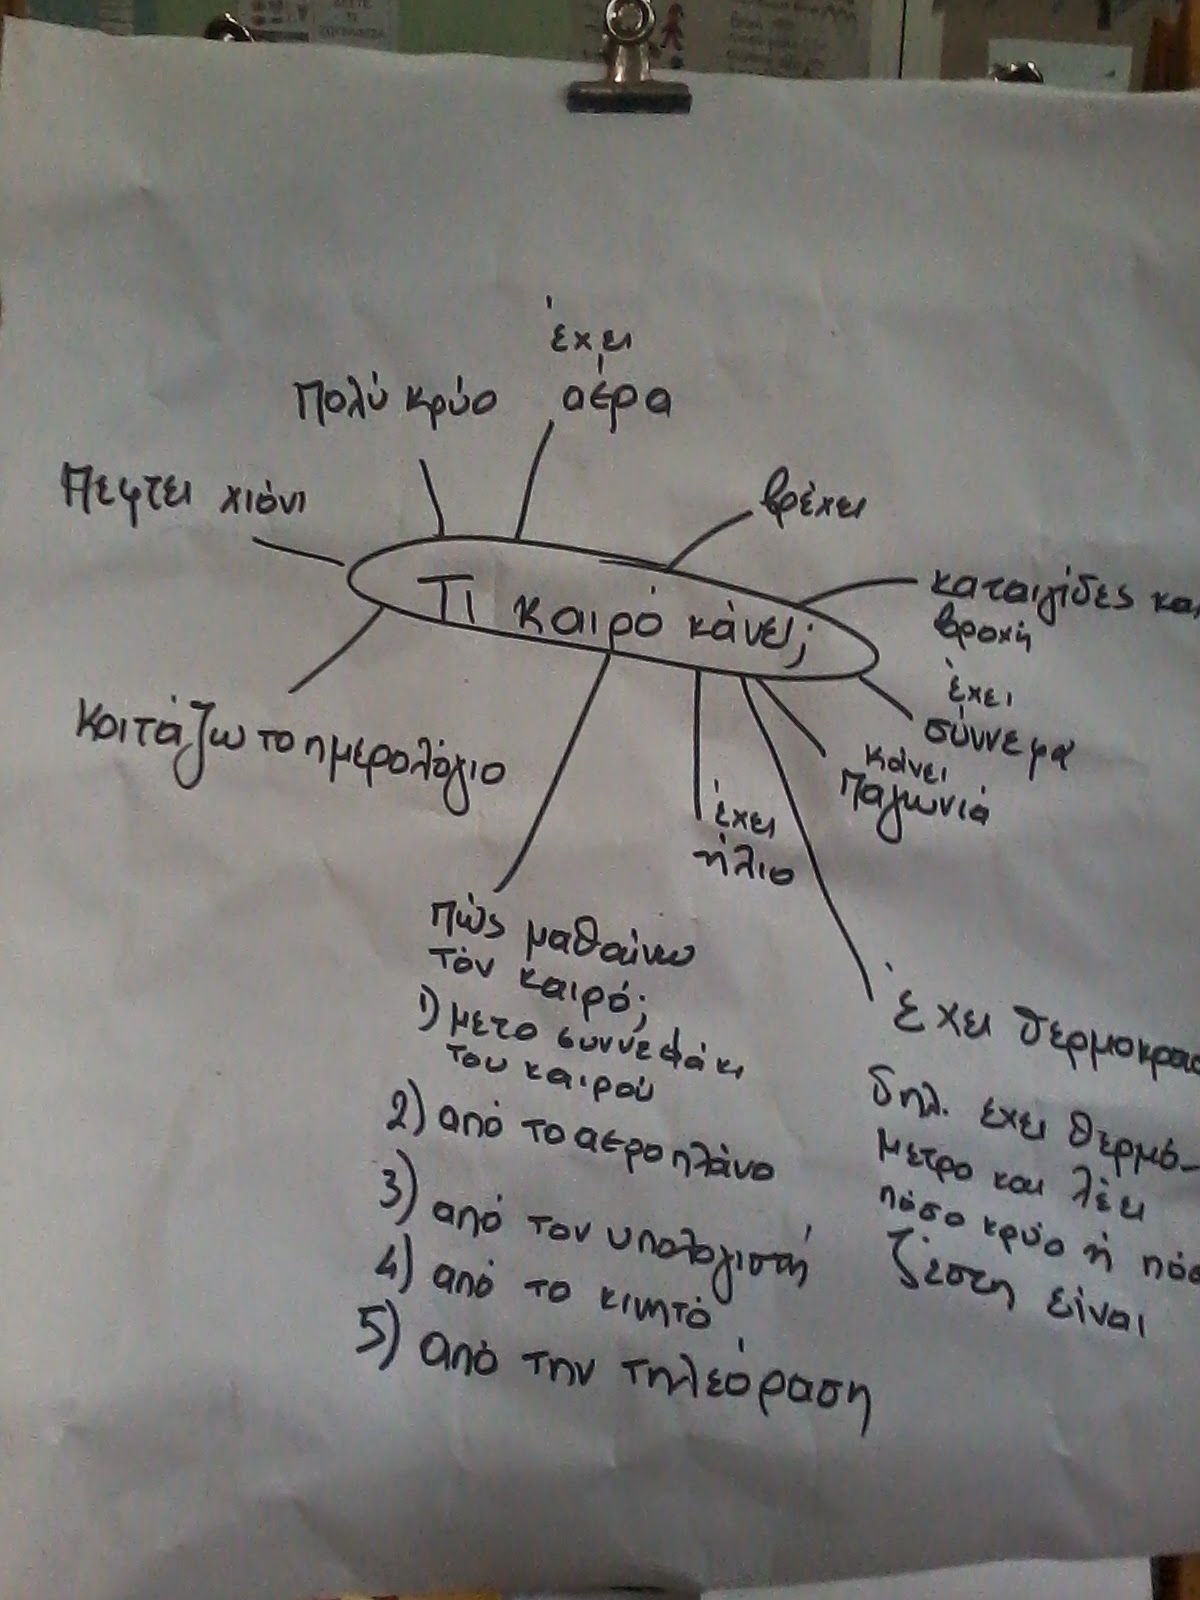 έχει
αέρα
Πολύ κρύο
Πεφτει χιόνι
βρέχει
καταιγίδες και
βροχή
Τι καιρό κάνει;
έχει
σύννεφα
κάνει
παγωνιά
Κοιτάζω το ημερολόγιο
έχει
ήλιο
Πώς μαθαίνω
τόν καιρό;
1) με το συννεφάκι
του καιρού
2) από το αεροπλάνο
3) από τον υπολογιστή
4) από το κινητό
5) από την τηλεόραση
Έχει θερμοκρασ
δηλ. έχει θερμό-
μετρο και λέει
πόσο κρύο ή πόσ
ζέστη είναι